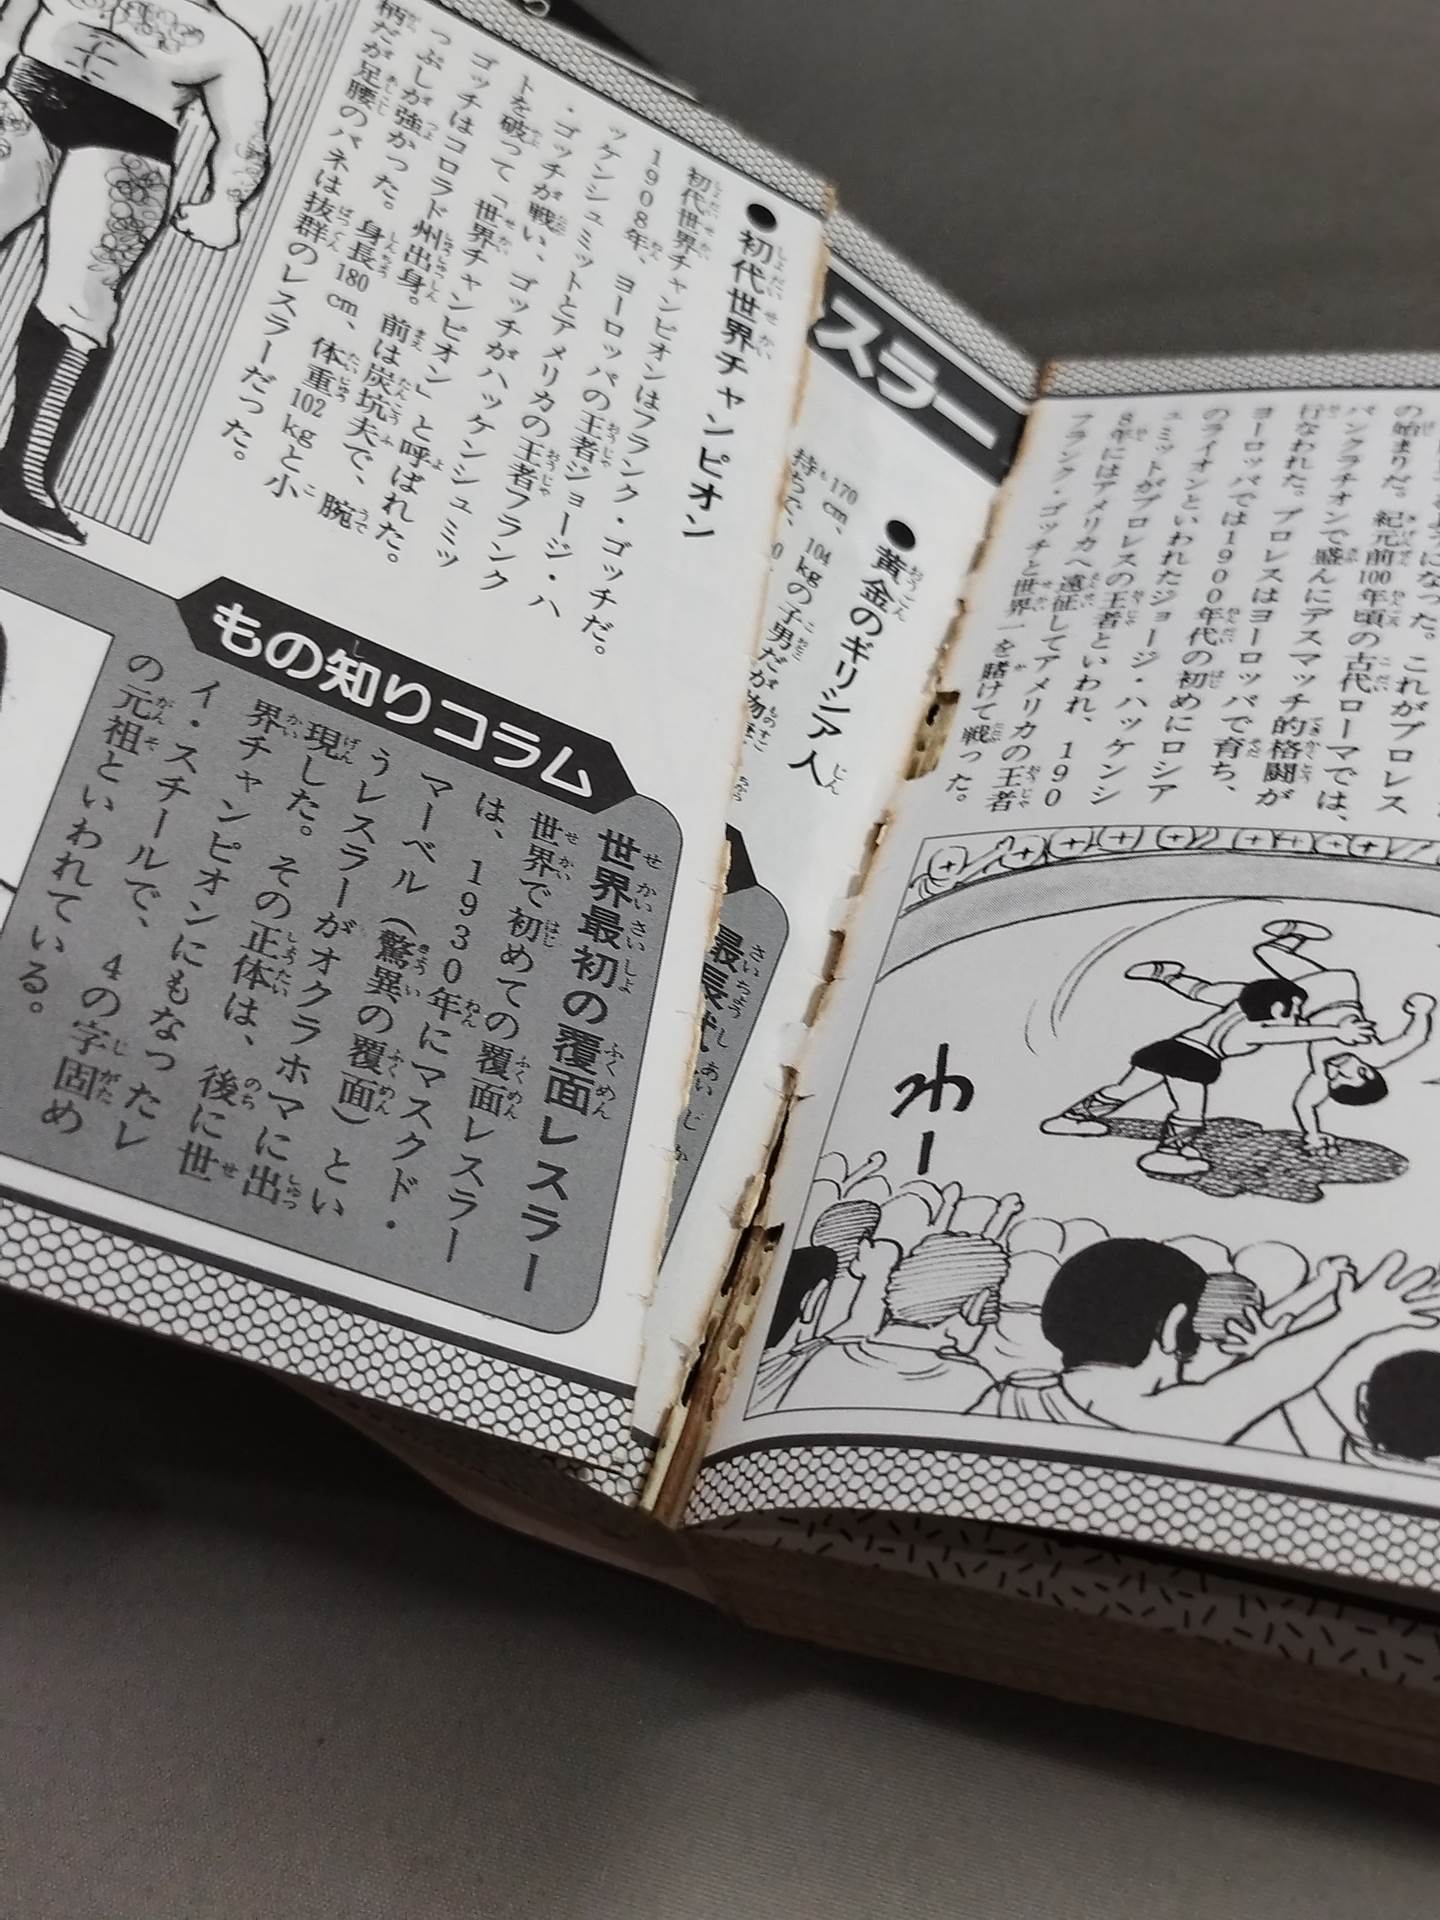 の始まりだ。紀元前100年頃の古代ローマでは、
パンクラチオンで盛んにデスマッチ的格闘が
行なわれた。プロレスはヨーロッパで育ち、
ヨーロッパでは1900年代の初めにロシア
のライオンといわれたジョージ・ハッケンシ
ュミットがプロレスの王者といわれ、190
8年にはアメリカへ遠征してアメリカの王者
フランク・ゴッチと世界一を賭けて戦った。
わー
スラー
●黄金のギリシア人
170cm、104kgの
持ちで、
●初代世界チャンピオン
初代世界チャンピオンはフランク・ゴッチだ。
1908年、ヨーロッパの王者ジョージ・ハ
ッケンシュミットとアメリカの王者フランク
・ゴッチが戦い、ゴッチがハッケンシュミッ
トを破って「世界チャンピオン」と呼ばれた。
ゴッチはコロラド州出身。前は炭坑夫で、腕
っぷしが強かった。身長180cm、体重102kgと小
柄だが足腰のバネは抜群のレスラーだった。
もの知りコラム
世界最初の覆面レスラー
世界で初めての覆面レスラー
は、1930年にマスクド・
マーベル（驚異の覆面）とい
うレスラーがオクラホマに出
現した。その正体は、後に世
界チャンピオンにもなったレ
イ・スチールで、4の字固め
の元祖といわれている。